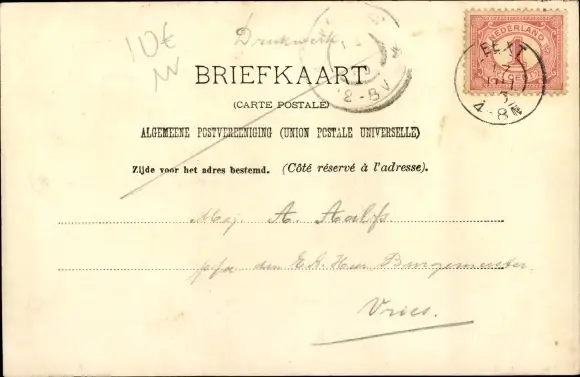 10€
Drukwerk
NEDERLAND
1
EEXT
4-8N
12-8V
BRIEFKAART
(CARTE POSTALE)
ALGEMEENE POSTVEREENIGING (UNION POSTALE UNIVERSELLE)
Zijde voor het adres bestemd. (Côté réservé à l'adresse).
Mej. A. Aalfs
p/a den E.A. Heer Burgemeester
Vries.